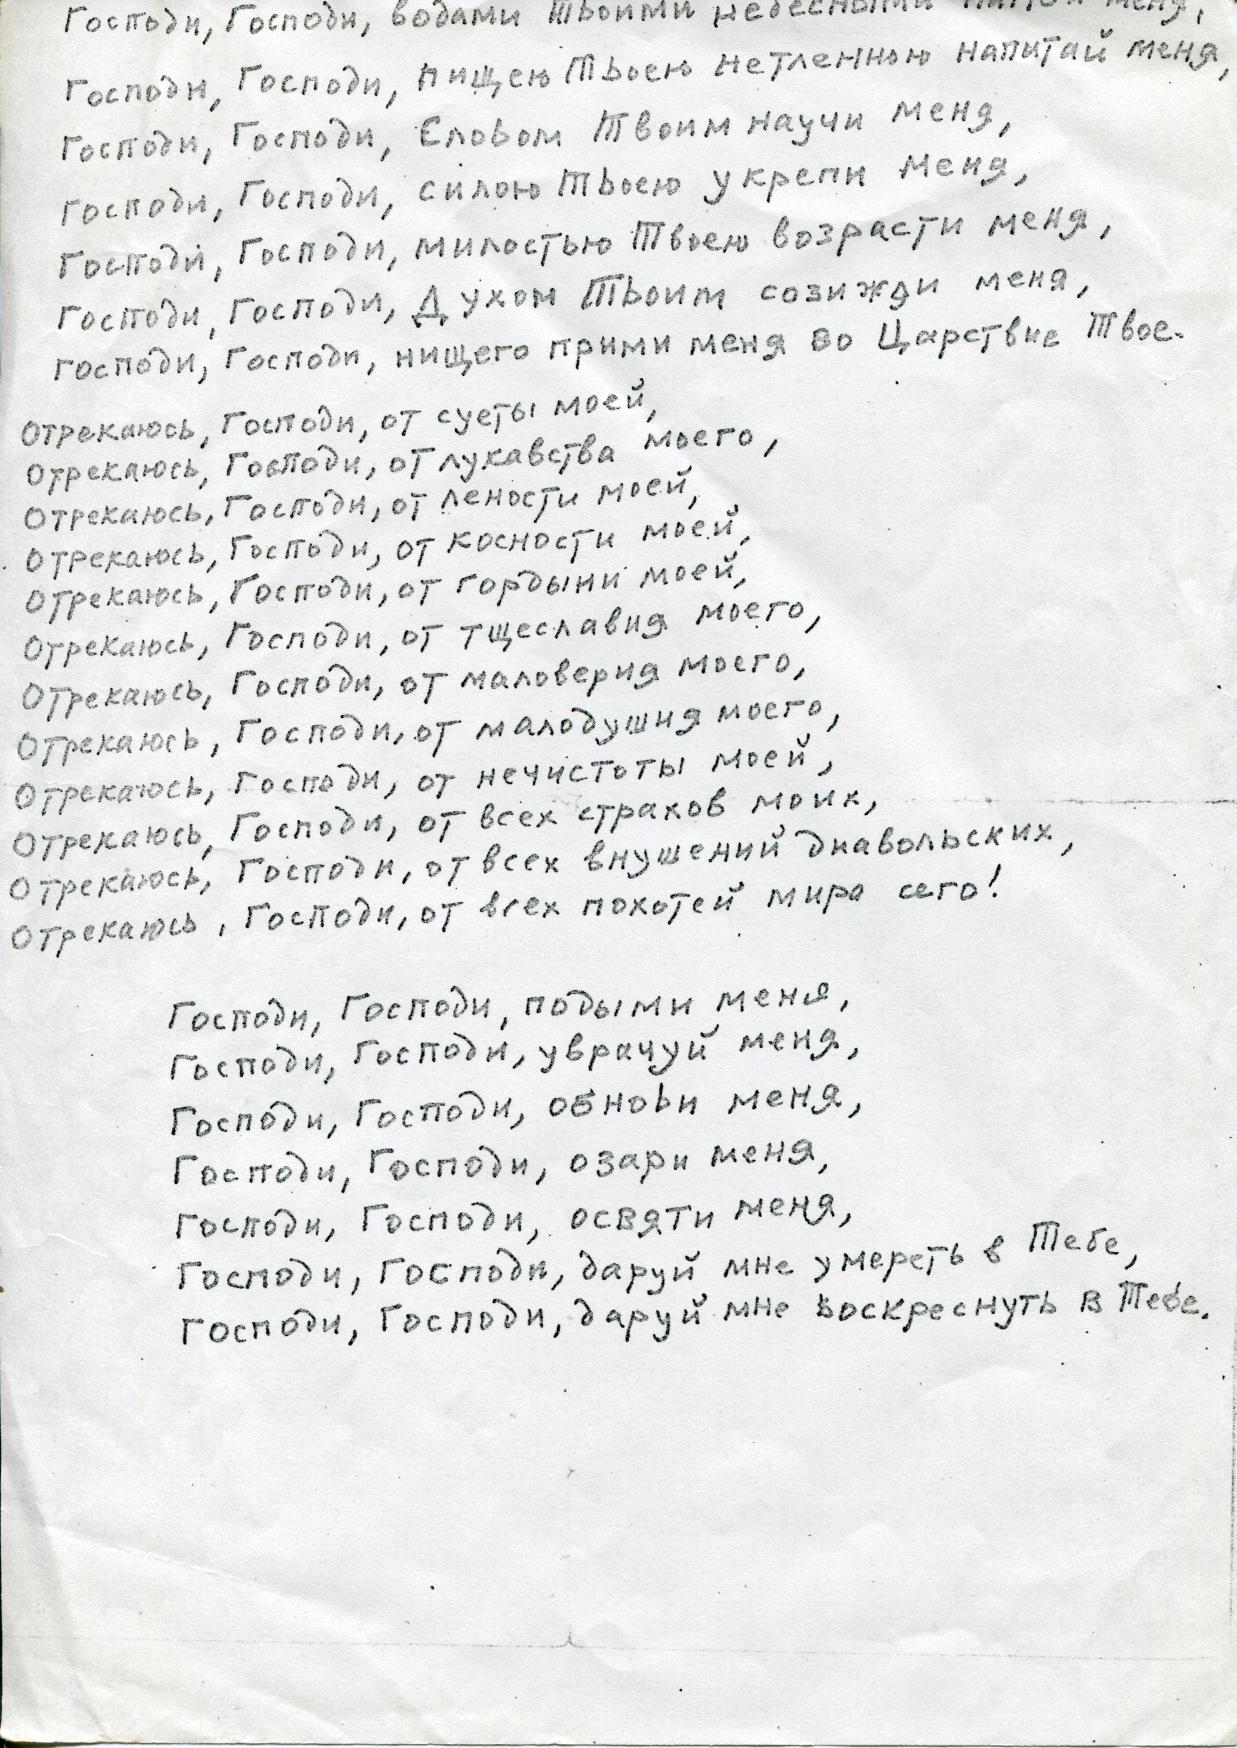 Господи, Господи, водами Твоими небесными напой меня,
Господи, Господи, пищею Твоею нетленною напитай меня,
Господи, Господи, Словом Твоим научи меня,
Господи, Господи, силою Твоею укрепи меня,
Господи, Господи, милостью Твоею возрасти меня,
Господи, Господи, Духом Твоим созижди меня,
Господи, Господи, нищего прими меня во Царствие Твое.
Отрекаюсь, Господи, от суеты моей,
Отрекаюсь, Господи, от лукавства моего,
Отрекаюсь, Господи, от лености моей,
Отрекаюсь, Господи, от косности моей,
Отрекаюсь, Господи, от гордыни моей,
Отрекаюсь, Господи, от тщеславия моего,
Отрекаюсь, Господи, от маловерия моего,
Отрекаюсь, Господи, от малодушия моего,
Отрекаюсь, Господи, от нечистоты моей,
Отрекаюсь, Господи, от всех страхов моих,
Отрекаюсь, Господи, от всех внушений диавольских,
Отрекаюсь, Господи, от всех похотей мира сего!
Господи, Господи, подыми меня,
Господи, Господи, уврачуй меня,
Господи, Господи, обнови меня,
Господи, Господи, озари меня,
Господи, Господи, освяти меня,
Господи, Господи, даруй мне умереть в Тебе,
Господи, Господи, даруй мне воскреснуть в Тебе.